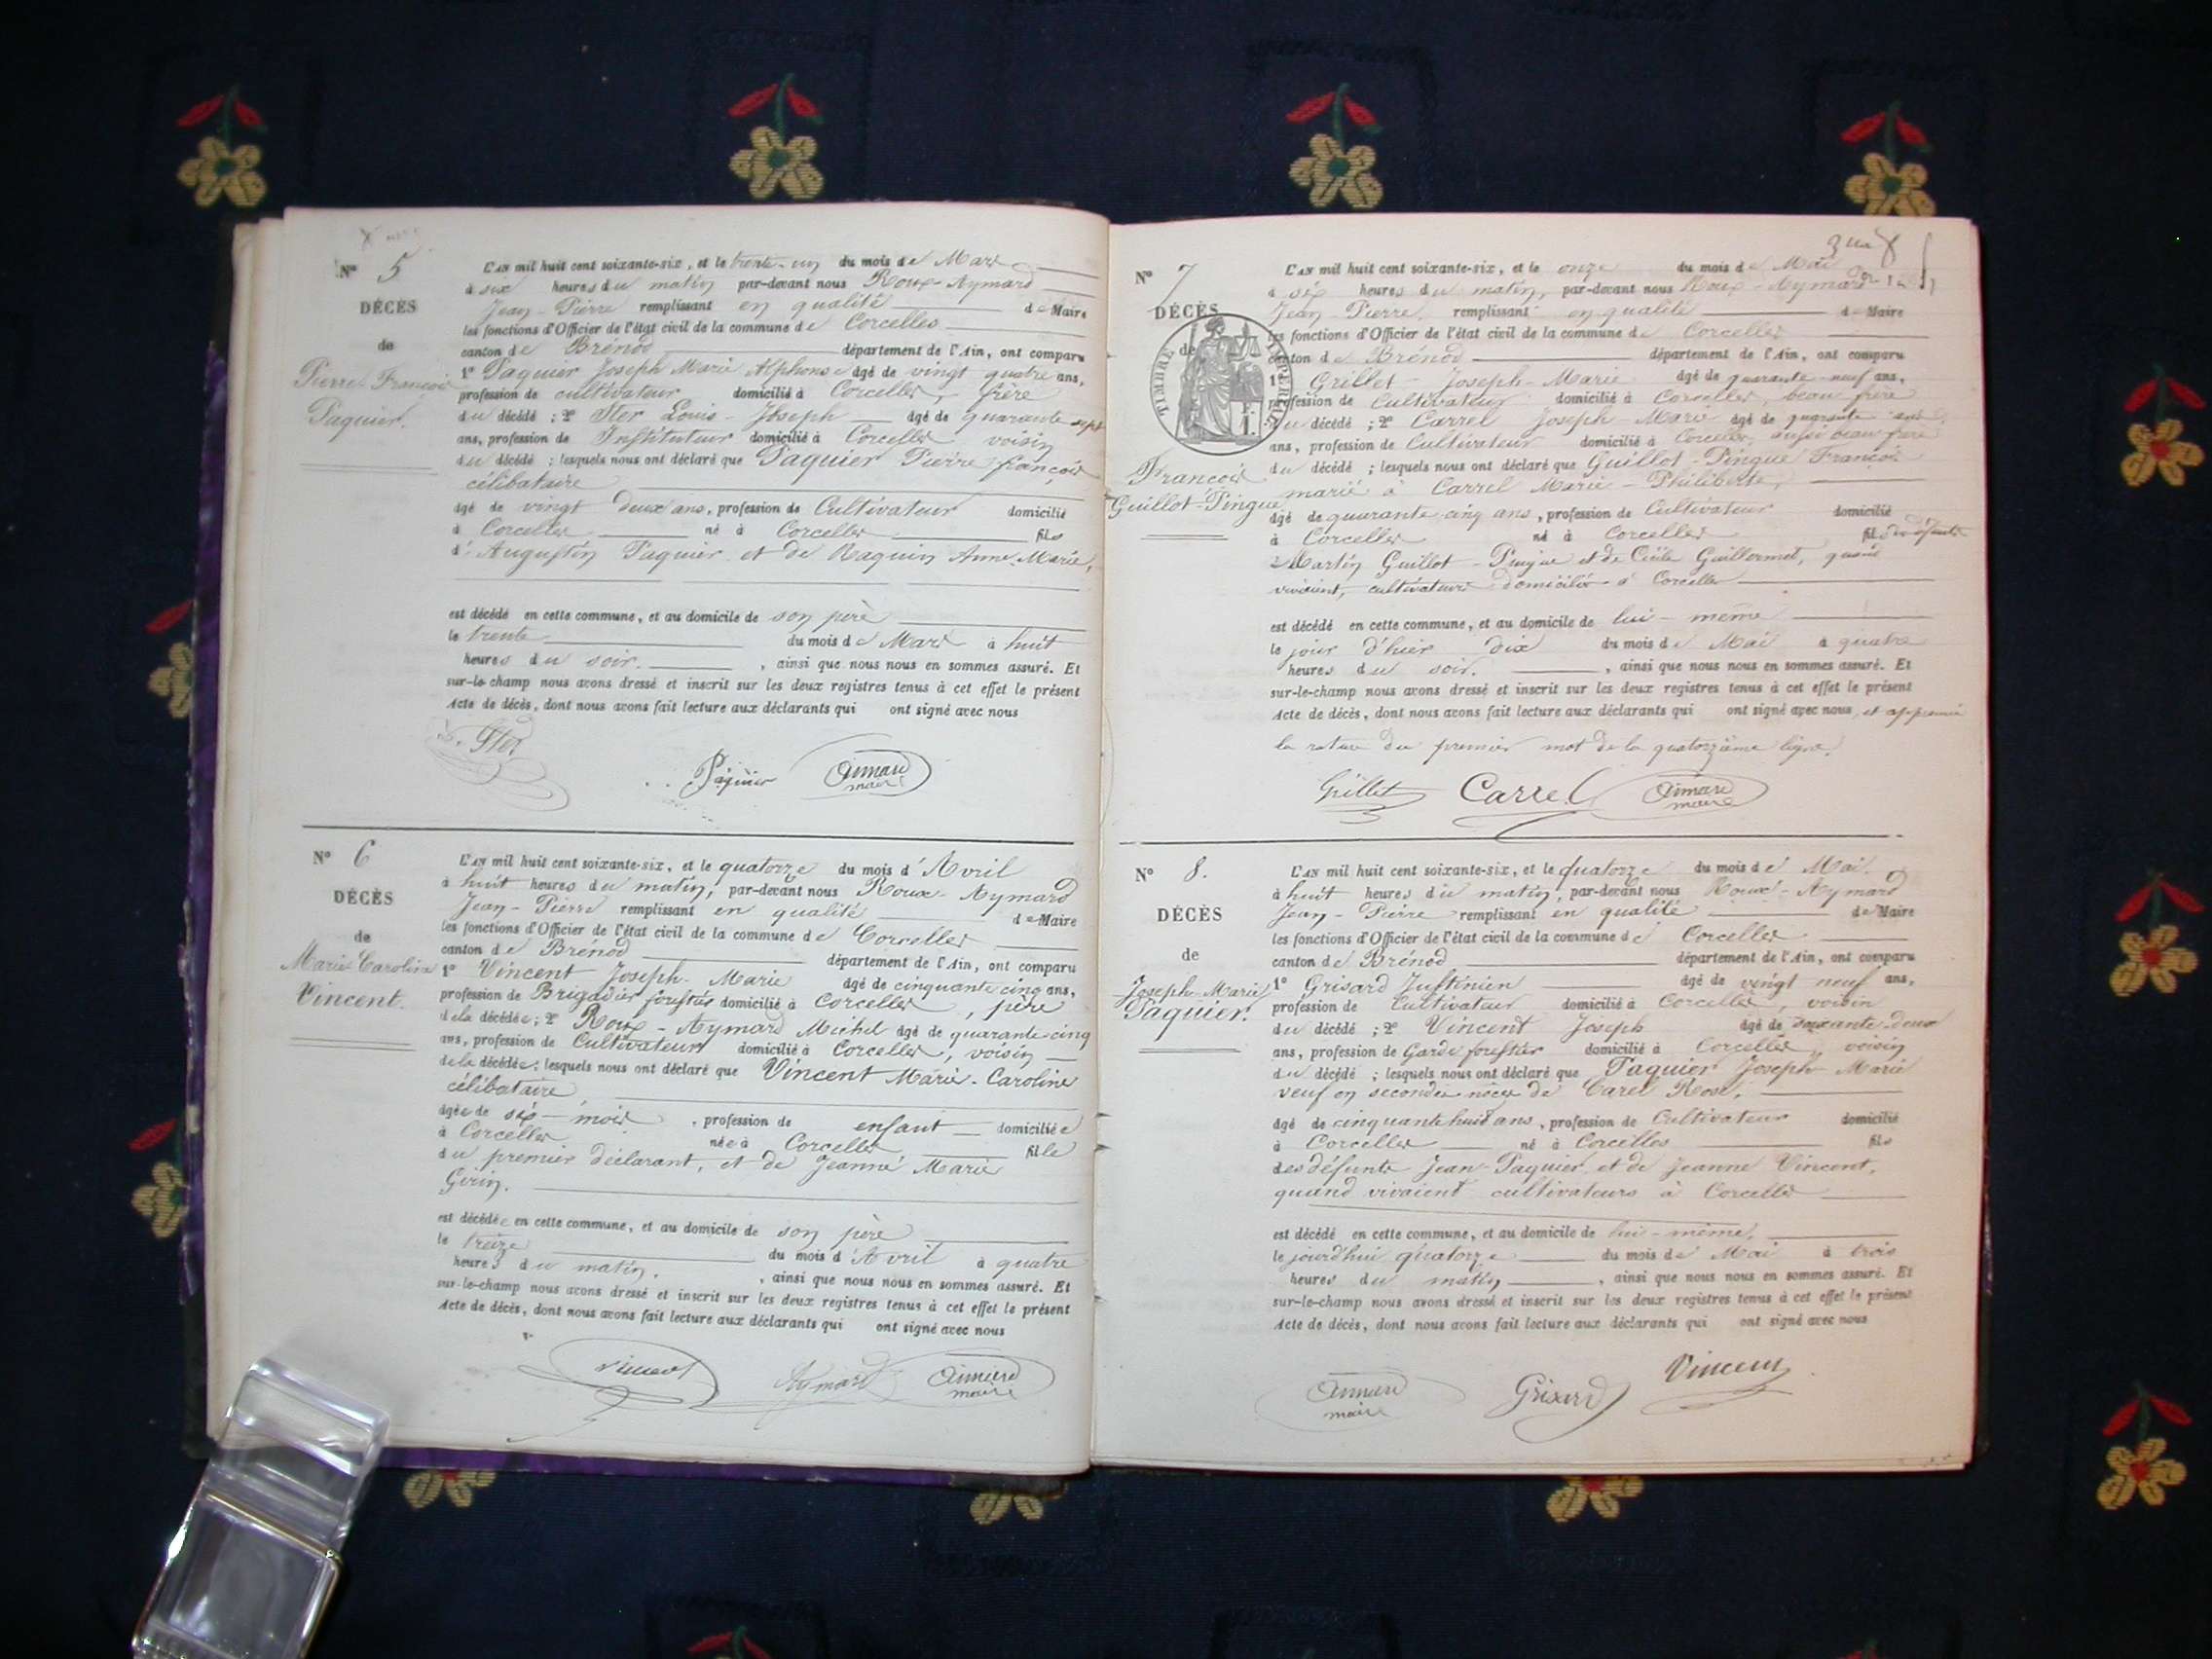 N° 5
DÉCÈS
de
Pierre François
Paquier.
L'an mil huit cent soixante-six, et le trente-un du mois de Mars
à six heures du matin par-devant nous Roux-Aymard
Jean-Pierre remplissant en qualité de Maire
les fonctions d'Officier de l'état civil de la commune de Corcelles
canton de Brénod département de l'Ain, ont comparu
1° Paquier Joseph Marie Alphonse âgé de vingt quatre ans,
profession de cultivateur domicilié à Corcelles, frère
du décédé ; 2° Louis-Joseph âgé de quarante sept
ans, profession de Instituteur domicilié à Corcelles voisin
du décédé ; lesquels nous ont déclaré que Paquier Pierre françois
célibataire
âgé de vingt deux ans, profession de Cultivateur domicilié
à Corcelles né à Corcelles fils
d'Augustin Paquier et de Raquin Anne-Marie,
est décédé en cette commune, et au domicile de son père
le trente du mois de Mars à huit
heures du soir. , ainsi que nous nous en sommes assuré. Et
sur-le-champ nous avons dressé et inscrit sur les deux registres tenus à cet effet le présent
Acte de décès, dont nous avons fait lecture aux déclarants qui ont signé avec nous
Paquier Aimard
maire
N° 6
DÉCÈS
de
Marie Caroline
Vincent.
L'an mil huit cent soixante-six, et le quatorze du mois d'Avril
à huit heures du matin, par-devant nous Roux-Aymard
Jean-Pierre remplissant en qualité de Maire
les fonctions d'Officier de l'état civil de la commune de Corcelles
canton de Brénod département de l'Ain, ont comparu
1° Vincent Joseph-Marie âgé de cinquante cinq ans,
profession de Brigadier forestier domicilié à Corcelles, père
de la décédée ; 2° Roux-Aymard Michel âgé de quarante-cinq
ans, profession de Cultivateur domicilié à Corcelles, voisin
de la décédée ; lesquels nous ont déclaré que Vincent Marie-Caroline
célibataire
âgée de six-mois, profession de enfant domiciliée
à Corcelles née à Corcelles fille
du premier déclarant, et de Jeanne Marie
Girin.
est décédée en cette commune, et au domicile de son père
le treize du mois d'Avril à quatre
heures du matin. , ainsi que nous nous en sommes assuré. Et
sur-le-champ nous avons dressé et inscrit sur les deux registres tenus à cet effet le présent
Acte de décès, dont nous avons fait lecture aux déclarants qui ont signé avec nous
Vincent Aymard Aimard
maire
N° 7
DÉCÈS
de
TIMBRE IMPÉRIAL
François
Guillot-Pingue
L'an mil huit cent soixante-six, et le onze du mois de Mai
à six heures du matin, par-devant nous Roux-Aymard
Jean-Pierre, remplissant en qualité de Maire
les fonctions d'Officier de l'état civil de la commune de Corcelles
canton de Brénod département de l'Ain, ont comparu
1° Grillet Joseph-Marie âgé de quarante-neuf ans,
profession de Cultivateur domicilié à Corcelles, beau frère
du décédé ; 2° Carrel Joseph-Marie âgé de quarante
ans, profession de Cultivateur domicilié à Corcelles, aussi beau frère
du décédé ; lesquels nous ont déclaré que Guillot-Pingue François
marié à Carrel Marie-Philiberte,
âgé de quarante cinq ans, profession de Cultivateur domicilié
à Corcelles né à Corcelles fils de défunts
Martin Guillot-Pingue et de Cécile Guillermet, quand
vivaient, cultivateurs domiciliés à Corcelles
est décédé en cette commune, et au domicile de lui-même
le jour d'hier dix du mois de Mai à quatre
heures du soir. , ainsi que nous nous en sommes assuré. Et
sur-le-champ nous avons dressé et inscrit sur les deux registres tenus à cet effet le présent
Acte de décès, dont nous avons fait lecture aux déclarants qui ont signé avec nous, et approuvé
la rature du premier mot de la quatorzième ligne.
Grillet Carrel Aimard
maire
N° 8.
DÉCÈS
de
Joseph-Marie
Paquier.
L'an mil huit cent soixante-six, et le quatorze du mois de Mai.
à huit heures du matin, par-devant nous Roux-Aymard
Jean-Pierre remplissant en qualité de Maire
les fonctions d'Officier de l'état civil de la commune de Corcelles
canton de Brénod département de l'Ain, ont comparu
1° Grisard Justinien âgé de vingt neuf ans,
profession de Cultivateur domicilié à Corcelles, voisin
du décédé ; 2° Vincent Joseph âgé de soixante-deux
ans, profession de Garde forestier domicilié à Corcelles, voisin
du décédé ; lesquels nous ont déclaré que Paquier Joseph-Marie
veuf en secondes noces de Carel Rose,
âgé de cinquante huit ans, profession de Cultivateur domicilié
à Corcelles né à Corcelles fils
des défunts Jean-Paquier et de Jeanne Vincent,
quand vivaient cultivateurs à Corcelles
est décédé en cette commune, et au domicile de lui-même,
le jourd'hui quatorze du mois de Mai à trois
heures du matin , ainsi que nous nous en sommes assuré. Et
sur-le-champ nous avons dressé et inscrit sur les deux registres tenus à cet effet le présent
Acte de décès, dont nous avons fait lecture aux déclarants qui ont signé avec nous
Aimard
maire Grisard Vincent